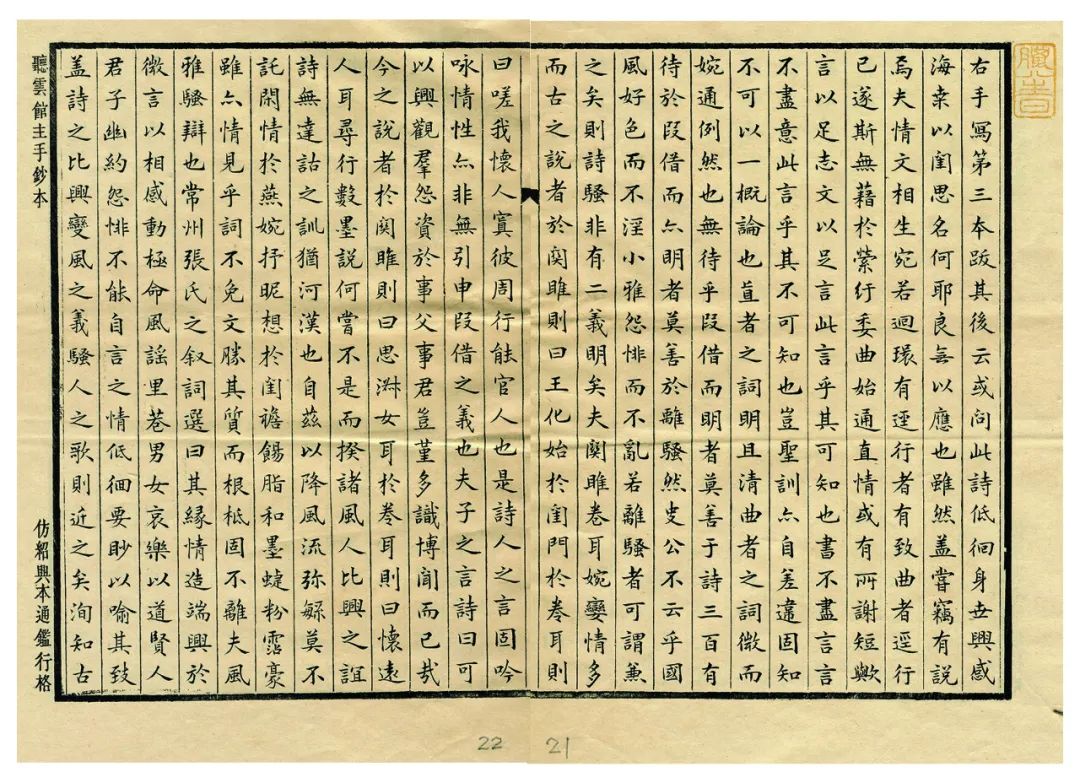 右手寫第三本跋其後云或问此詩低徊身世興感
海桑以閨思名何耶良無以應也雖然盖嘗竊有說
焉夫情文相生宛若迴環有逕行者有致曲者逕行
已遂斯無藉於縈紆委曲始通直情或有所謝短歟
言以足志文以足言此言乎其可知也書不盡言言
不盡意此言乎其不可知也豈聖訓亦自差違固知
不可以一概論也直者之詞明且清曲者之詞微而
婉通例然也無待乎叚借而明者莫善于詩三百有
待於叚借而亦明者莫善於離騷然史公不云乎國
風好色而不淫小雅怨悱而不亂若離騷者可謂兼
之矣則詩騷非有二義明矣夫関雎卷耳婉孌情多
而古之說者於関雎則曰王化始於閨門於卷耳則
曰嗟我懷人寘彼周行能官人也是詩人之言固吟
咏情性亦非無引申叚借之義也夫子之言詩曰可
以興觀羣怨資於事父事君豈堇多識博聞而已哉
今之說者於関雎則曰思淑女耳於卷耳則曰懷遠
人耳尋行數墨說何嘗不是而揆諸風人比興之誼
詩無達詁之訓猶河漢也自茲以降風流弥緜莫不
託閑情於燕婉抒昵想於閨襜餳脂和墨蜨粉霑豪
雖亦情見乎詞不免文勝其質而根柢固不離夫風
雅騷辯也常州張氏之叙詞選曰其緣情造端興於
微言以相感動極命風謠里巷男女哀樂以道賢人
君子幽約怨悱不能自言之情低徊要眇以喻其致
盖詩之比興變風之義騷人之歌則近之矣洵知古
聽雲館主手鈔本
仿紹興本通鑑行格
22
21